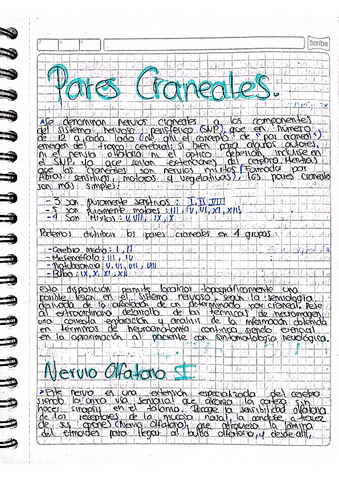 Scribe
Pares Craneales.
Se denominan nervios craneales a los componentes
del sistema nervioso periférico (SNP), que en número
de 12 a cada lado (de ahí el concepto de "par craneal")
emergen del tronco cerebral; si bien para algunos autores,
ni el nervio olfatorio ni el óptico deberían incluirse en
el SNP, ya que serían extensiones del cerebro. Mientras
que los craneales son nervios mixtos (Formado por
fibras sensitivas, motoras y vegetativas), los pares craneales
son más simples:
- 3 son puramente sensitivos: I, II, VIII
- 5 son puramente motores: III, IV, VI, XI, XII
- 4 son Mixtos: V, VII, IX, X
Podemos distribuir los pares craneales en 4 grupos:
- Cerebro medio: I, II
- Mesencéfalo: III, IV
- Protuberancia: V, VI, VII, VIII
- Bulbo: IX, X, XI, XII
Esta disposición permite localizar topográficamente una
posible lesión en el sistema nervioso, según la semiología
derivada de la afectación de un determinado par craneal. Pese
al extraordinario desarrollo de las técnicas de neuroimagen,
una correcta exploración y análisis de la información obtenida
en términos de neuroanatomía continúa siendo esencial
en la aproximación al paciente con sintomatología neurológica.
Nervio Olfatorio I
Este nervio es una extensión especializada del cerebro
siendo la única vía sensorial que alcanza la corteza sin
hacer sinapsis en el tálamo. Recoge la sensibilidad olfatoria
de los receptores de la mucosa nasal, la conduce a través
de sus axones (Nervio olfatorio), que atraviesa la lámina
del etmoides para llegar al bulbo olfatorio, y desde allí,